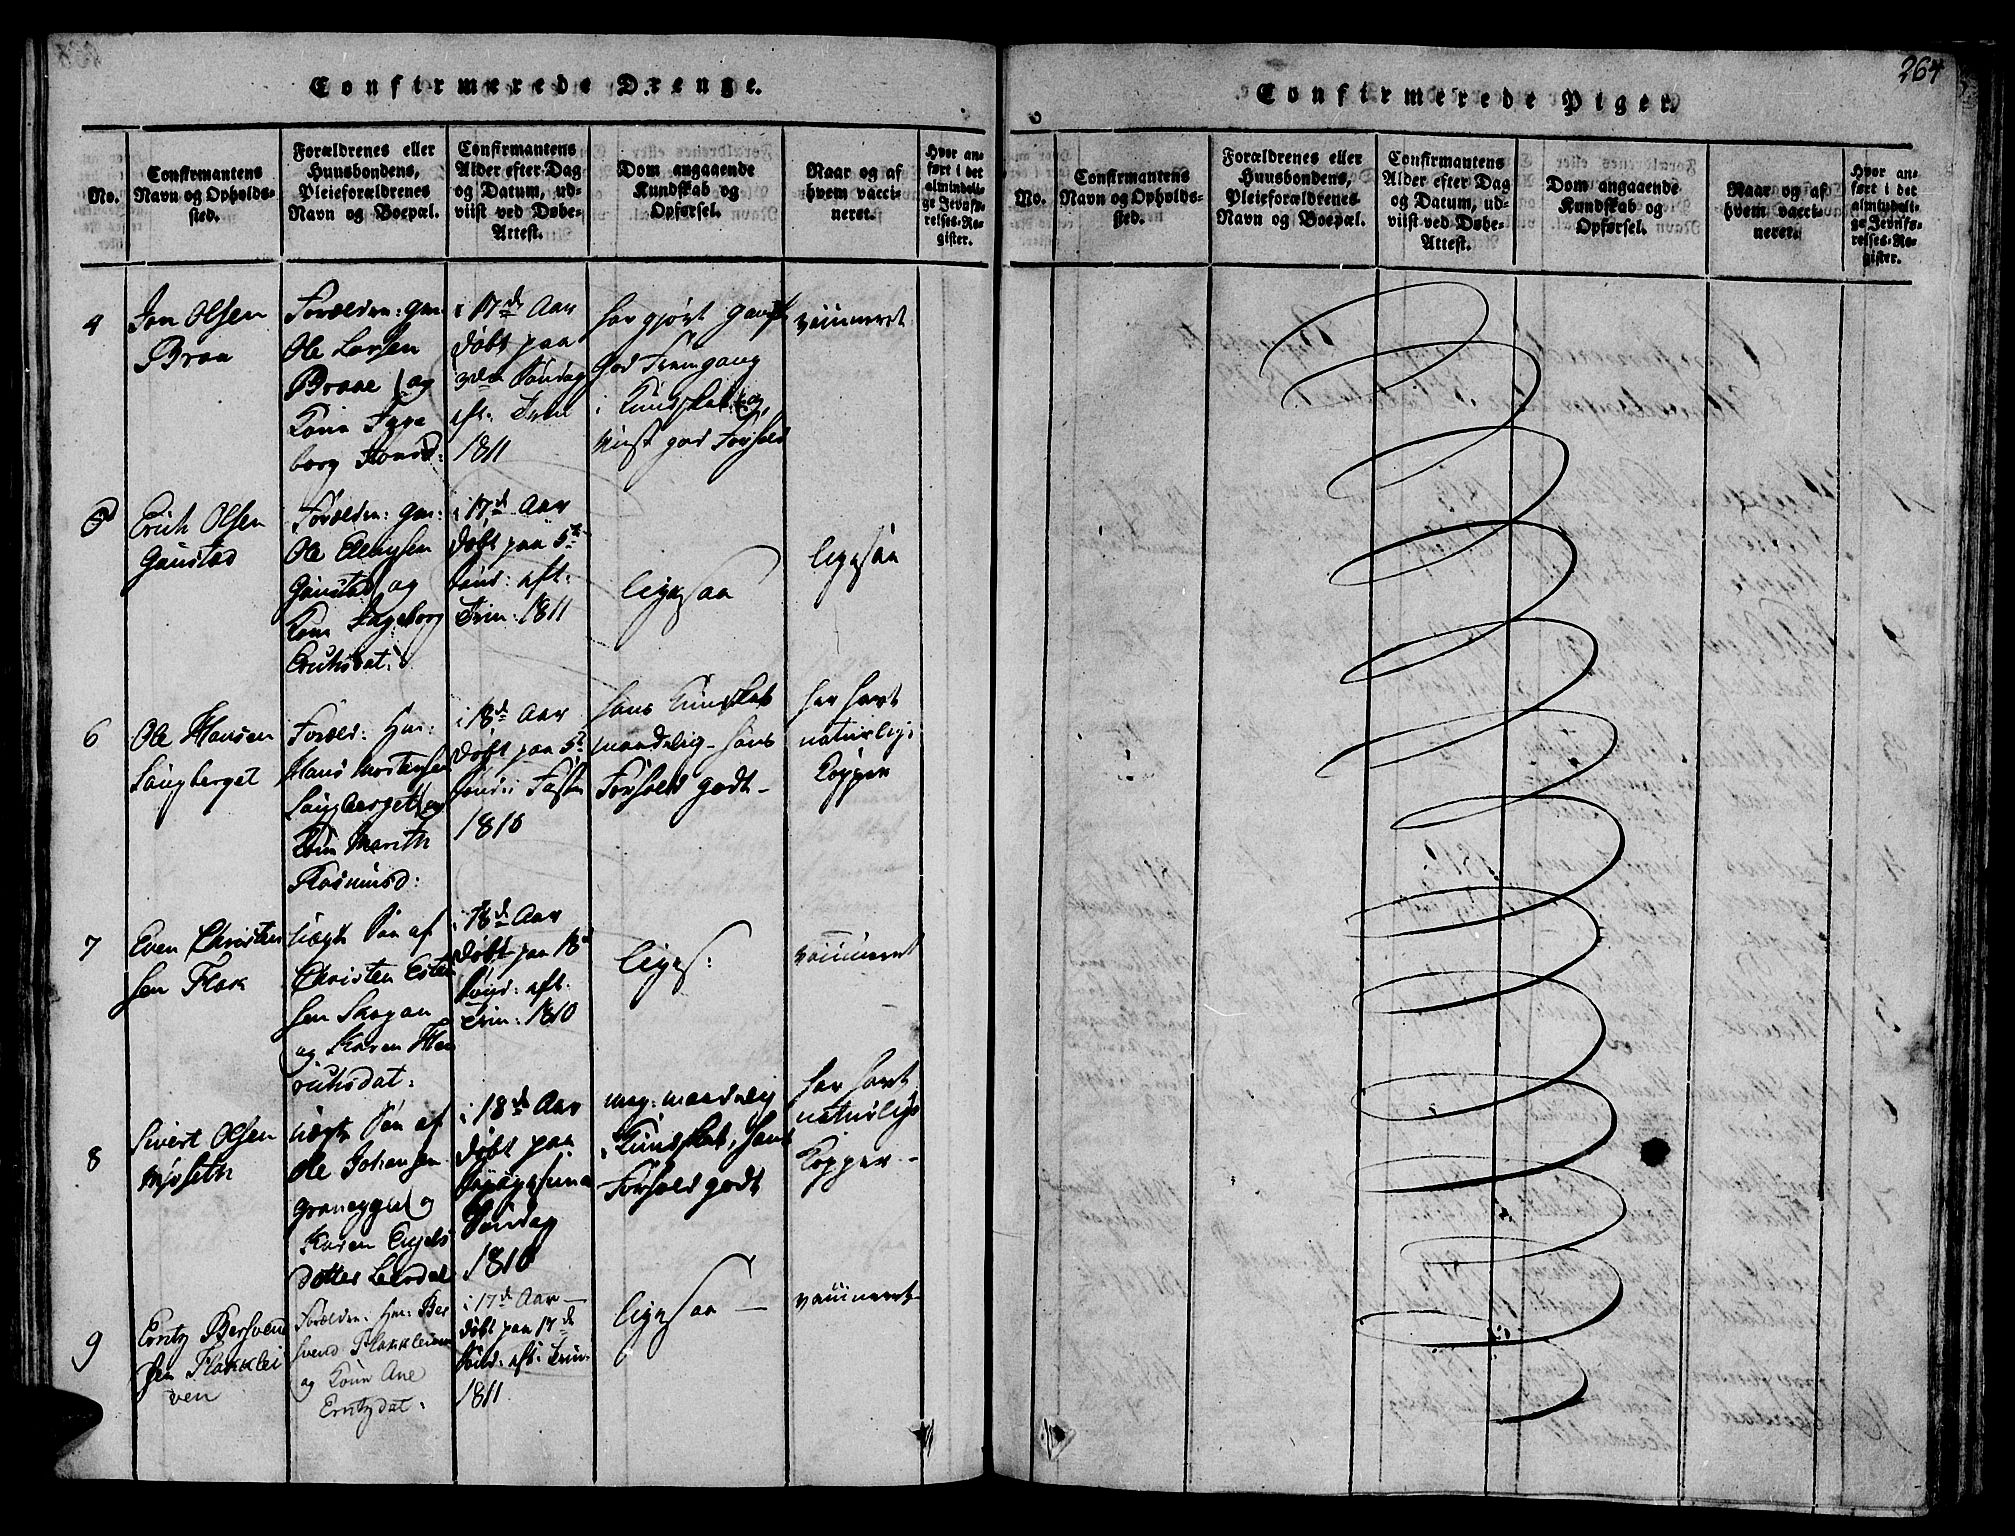 Confirmerede Drenge.
No.
Confirmantens
Navn og Opholds-
sted.
Forældrenes eller
Huusbondens,
Pleieforældrenes
Navn og Boepæl.
Confirmantens
Alder efter Dag
og Datum, ud-
viist ved Døbe-
Attest.
Dom angaaende
Kundskab og
Opførsel.
Naar og af
hvem vacci-
neret.
Hvor an-
ført i det
almindeli-
ge Jevnfø-
relses-Re-
gister.
4
Jon Olsen
Braa
Forælder: Gm:
Ole Larsen
Braae og
Kone
i 17de Aar
døbt paa
3die Søndag
eft. Trin
1811
har gjort
god Fremgang
i Kundskab og
viist god Forhold
vaccineret
5
Erich Olsen
Gaustad
Forælder: Gm:
Ole Ellevsen
Gaustad og
Kone Ingeborg
Erichsdat:
i 17de Aar
døbt paa 5te
Sønd: eft.
Trin: 1811
ligesaa
ligesaa
6
Ole Hansen
Langberget
Foræld: Hm:
Hans Mortensen
Langberget og
Kone Marith
Rasmusd:
i 18de Aar
døbt paa 5te
Sønd: i Fasten
1810
hans Kundskab
maadelig - hans
Forhold godt -
har havt
naturlige
Kopper
7
Even Christen
sen Flak
uægte Søn af
Christen Esten
sen Skogan
og Karen Hen
richsdat:
i 18de Aar
døbt paa 18de
Sønd: eft.
Trin: 1810
liges:
vaccineret
8
Sivert Olsen
Mysseth
uægte Søn af
Ole Johansen
og
Karen Engels
datter Leerdal
i 18de Aar
døbt paa
Søndag
1810
meg: maadelig
Kundskab, hans
Forhold godt
har havt
naturlige
Kopper -
9
Erntz Bersvend
sen Flakklei
ven
Forælder: Hm: Ber
svend Flakkleiven
og Kone Ane
Erntzdat:
i 17de Aar -
døbt paa 17de
Sønd: eft: Trin:
1811
ligesaa -
vaccineret
264
Confirmerede Piger.
No.
Confirmantens
Navn og Opholds-
sted.
Forældrenes eller
Huusbondens,
Pleieforældrenes
Navn og Boepæl.
Confirmantens
Alder efter Dag
og Datum, ud-
viist ved Døbe-
Attest.
Dom angaaende
Kundskab og
Opførsel.
Naar og af
hvem vacci-
neret.
Hvor an-
ført i det
almindeli-
ge Jevnfø-
relses-Re-
gister.